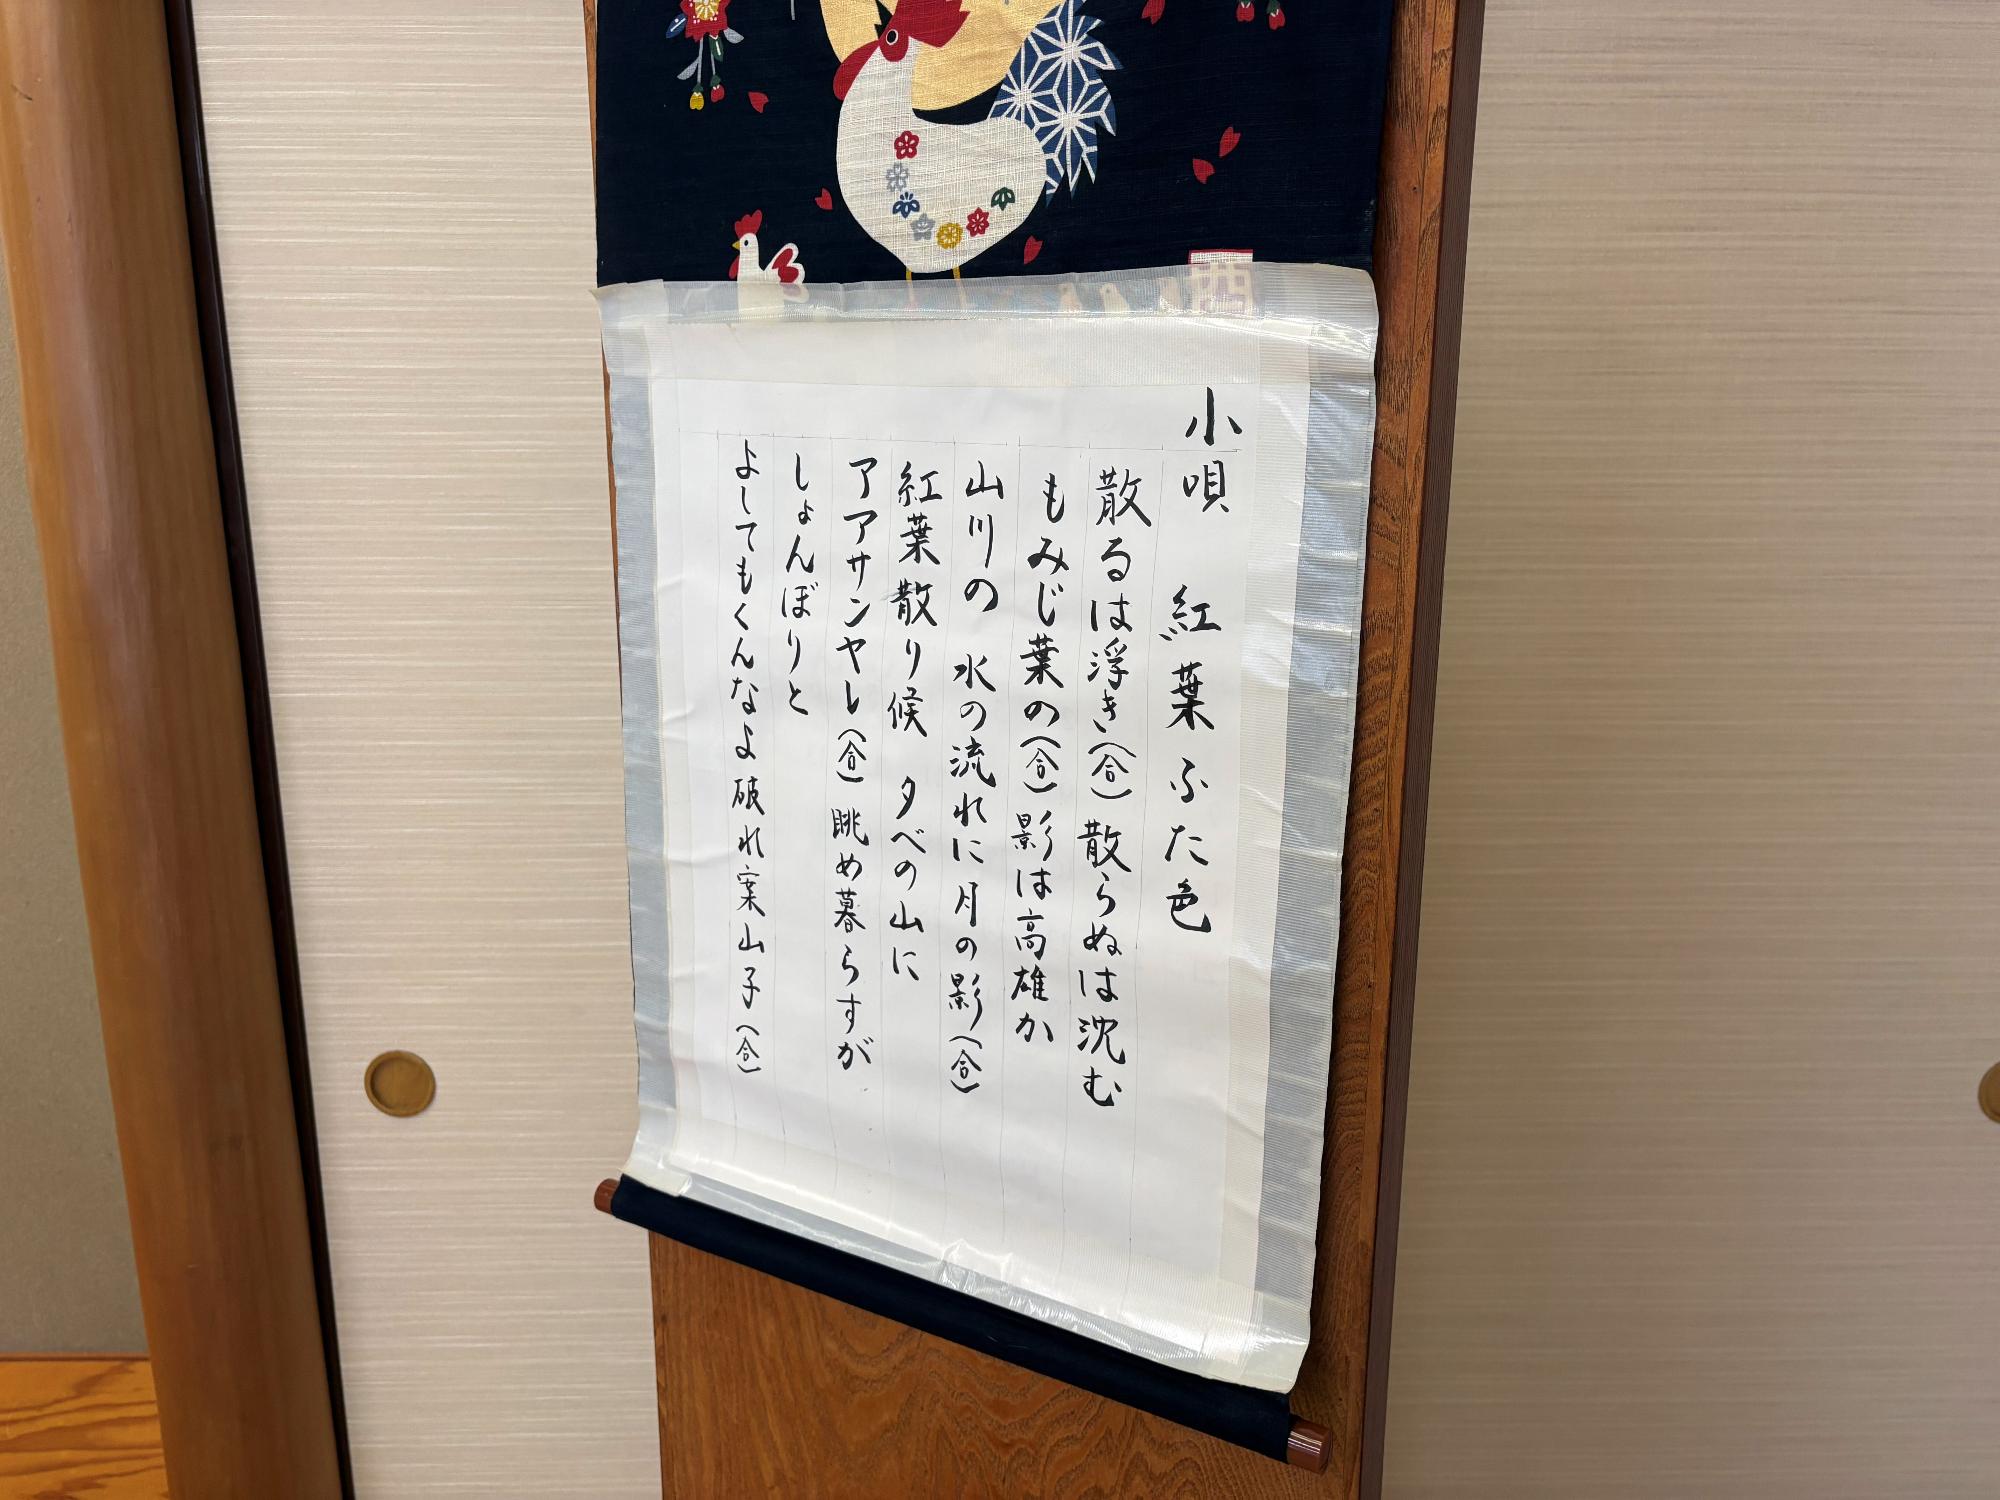 酉
小唄 紅葉ふた色
散るは浮き(合)散らぬは沈む
もみじ葉の(合)影は高雄か
山川の 水の流れに月の影(合)
紅葉散り候 夕べの山に
アアアサンヤレ(合)眺め暮らすが
しょんぼりと
よしてもくんなよ破れ案山子(合)